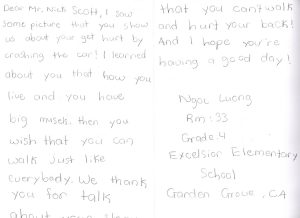 Dear Mr. Nick Scott, I saw
some picture that you show
us about your get hurt by
crashing the car! I learned
about you that how you
live and you have
big musels. then you
wish that you can
walk just like
everybody. We thank
you for talk
about your
that you can't walk
and hurt your back!
And I hope you're
having a good day!
Ngoc Luong
Rm: 33
Grade 4
Excelsior Elementary
School
Garden Grove, CA